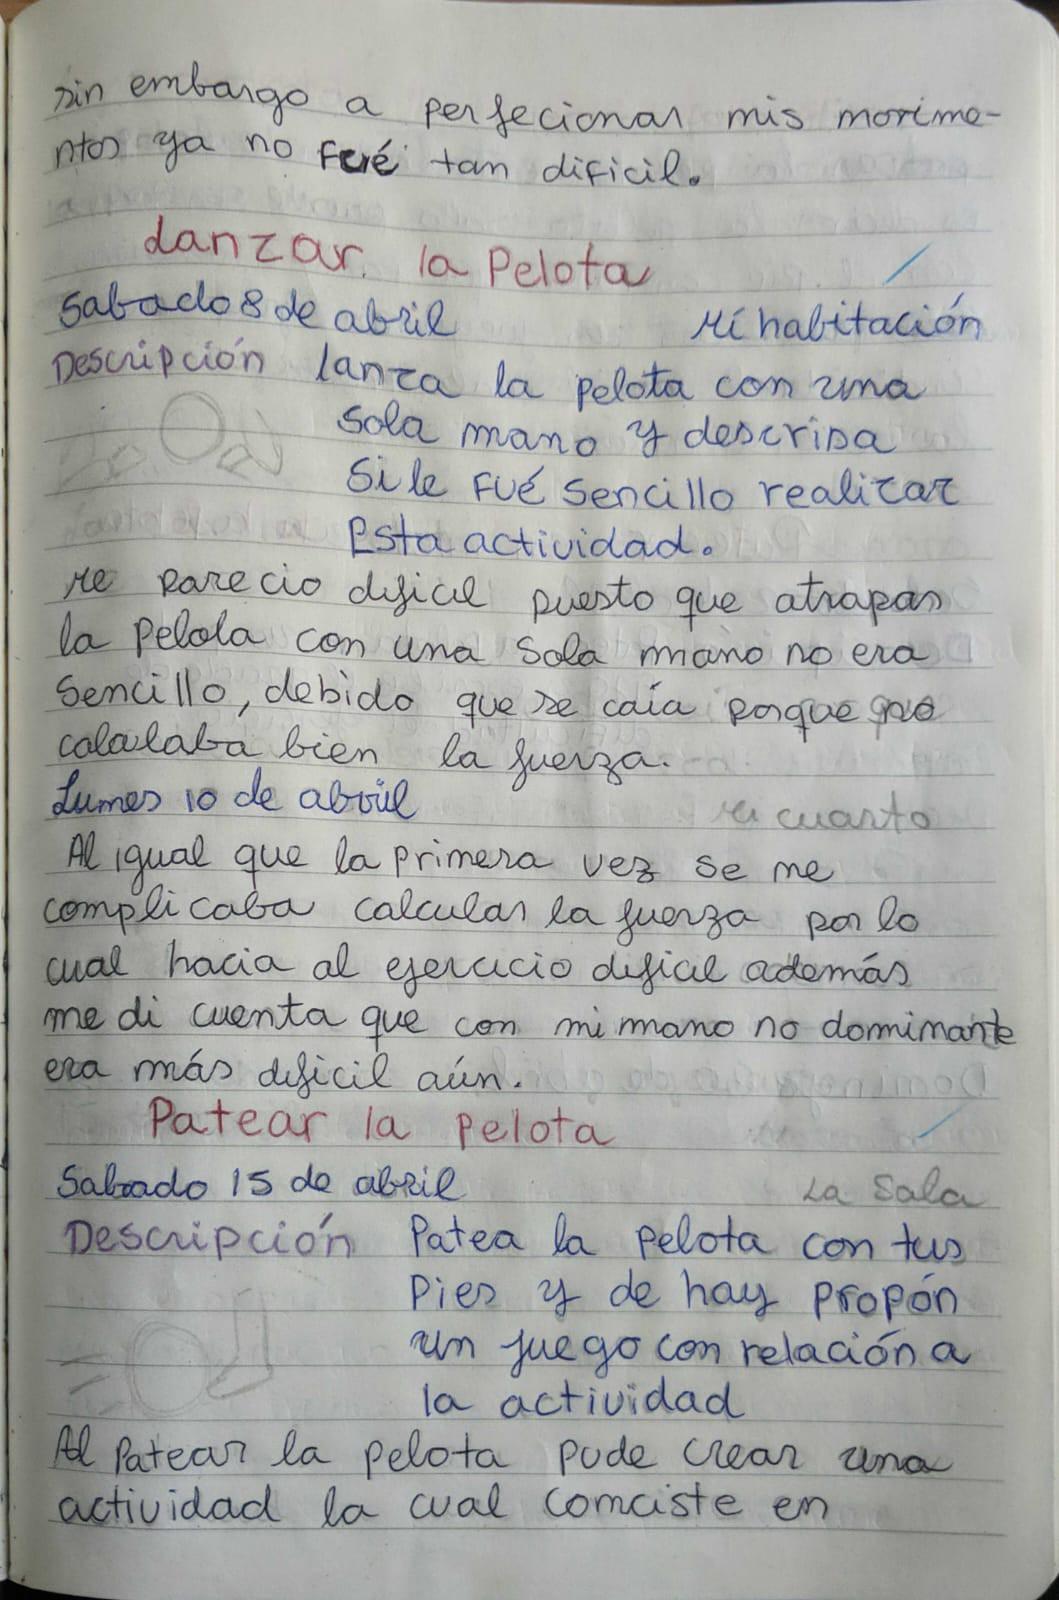 sin embargo a perfecionar mis movime-
ntos ya no Fué tan dificil.
Lanzar la Pelota
Sabado 8 de abril Mi habitación
Descripción lanza la pelota con una
sola mano y describa
Si le Fué Sencillo realizar
Esta actividad.
Me parecio dificil puesto que atrapar
la Pelota con una sola mano no era
Sencillo, debido que se caía porque no
calculaba bien la fuerza.
Lunes 10 de abril Mi cuarto
Al igual que la primera vez se me
complicaba calcular la fuerza por lo
cual hacia al ejercicio dificil además
me di cuenta que con mi mano no dominante
era más dificil aún.
Patear la pelota
Sabado 15 de abril La Sala
Descripción Patea la pelota con tus
Pies y de hay propón
un juego con relación a
la actividad
Al Patear la pelota pude crear una
actividad la cual conciste en